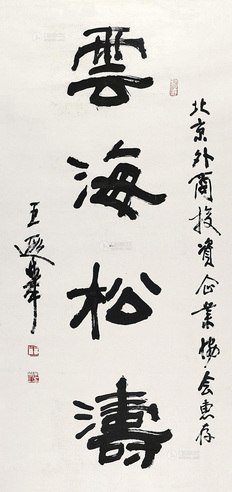 北京外商投資企業協會惠存
雲海松濤
王遐舉